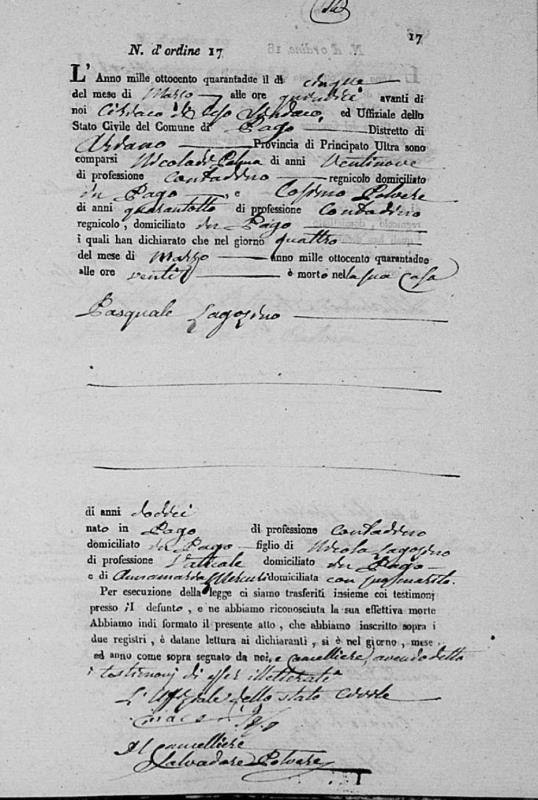 17
N. d'ordine 17
L'Anno mille ottocento quarantadue il dì cinque
del mese di Marzo alle ore quindici avanti di
noi Sindaco, ed Uffiziale dello
Stato Civile del Comune di Pago Distretto di
Provincia di Principato Ultra sono
comparsi Nicola di Palma di anni Ventinove
di professione Contadino regnicolo domiciliato
in Pago, e Cosimo Polvere
di anni quarantotto di professione Contadino
regnicolo, domiciliato in Pago
i quali han dichiarato che nel giorno quattro
del mese di Marzo anno mille ottocento quarantadue
alle ore venti è morto nella sua Casa
Pasquale Lagozino
di anni dodici
nato in Pago di professione Contadino
domiciliato in Pago figlio di Nicola Lagozino
di professione domiciliato in Pago
e di domiciliata con suo marito.
Per esecuzione della legge ci siamo trasferiti insieme coi testimonj
presso il defunto, e ne abbiamo riconosciuta la sua effettiva morte
Abbiamo indi formato il presente atto, che abbiamo inscritto sopra i
due registri, è datane lettura ai dichiaranti, si è nel giorno, mese
ed anno come sopra segnato da noi, e Cancelliere, avendo detto
i testimonj di esser illetterati
L'Uffiziale dello stato Civile
Il Cancelliere
Salvadore Polvere